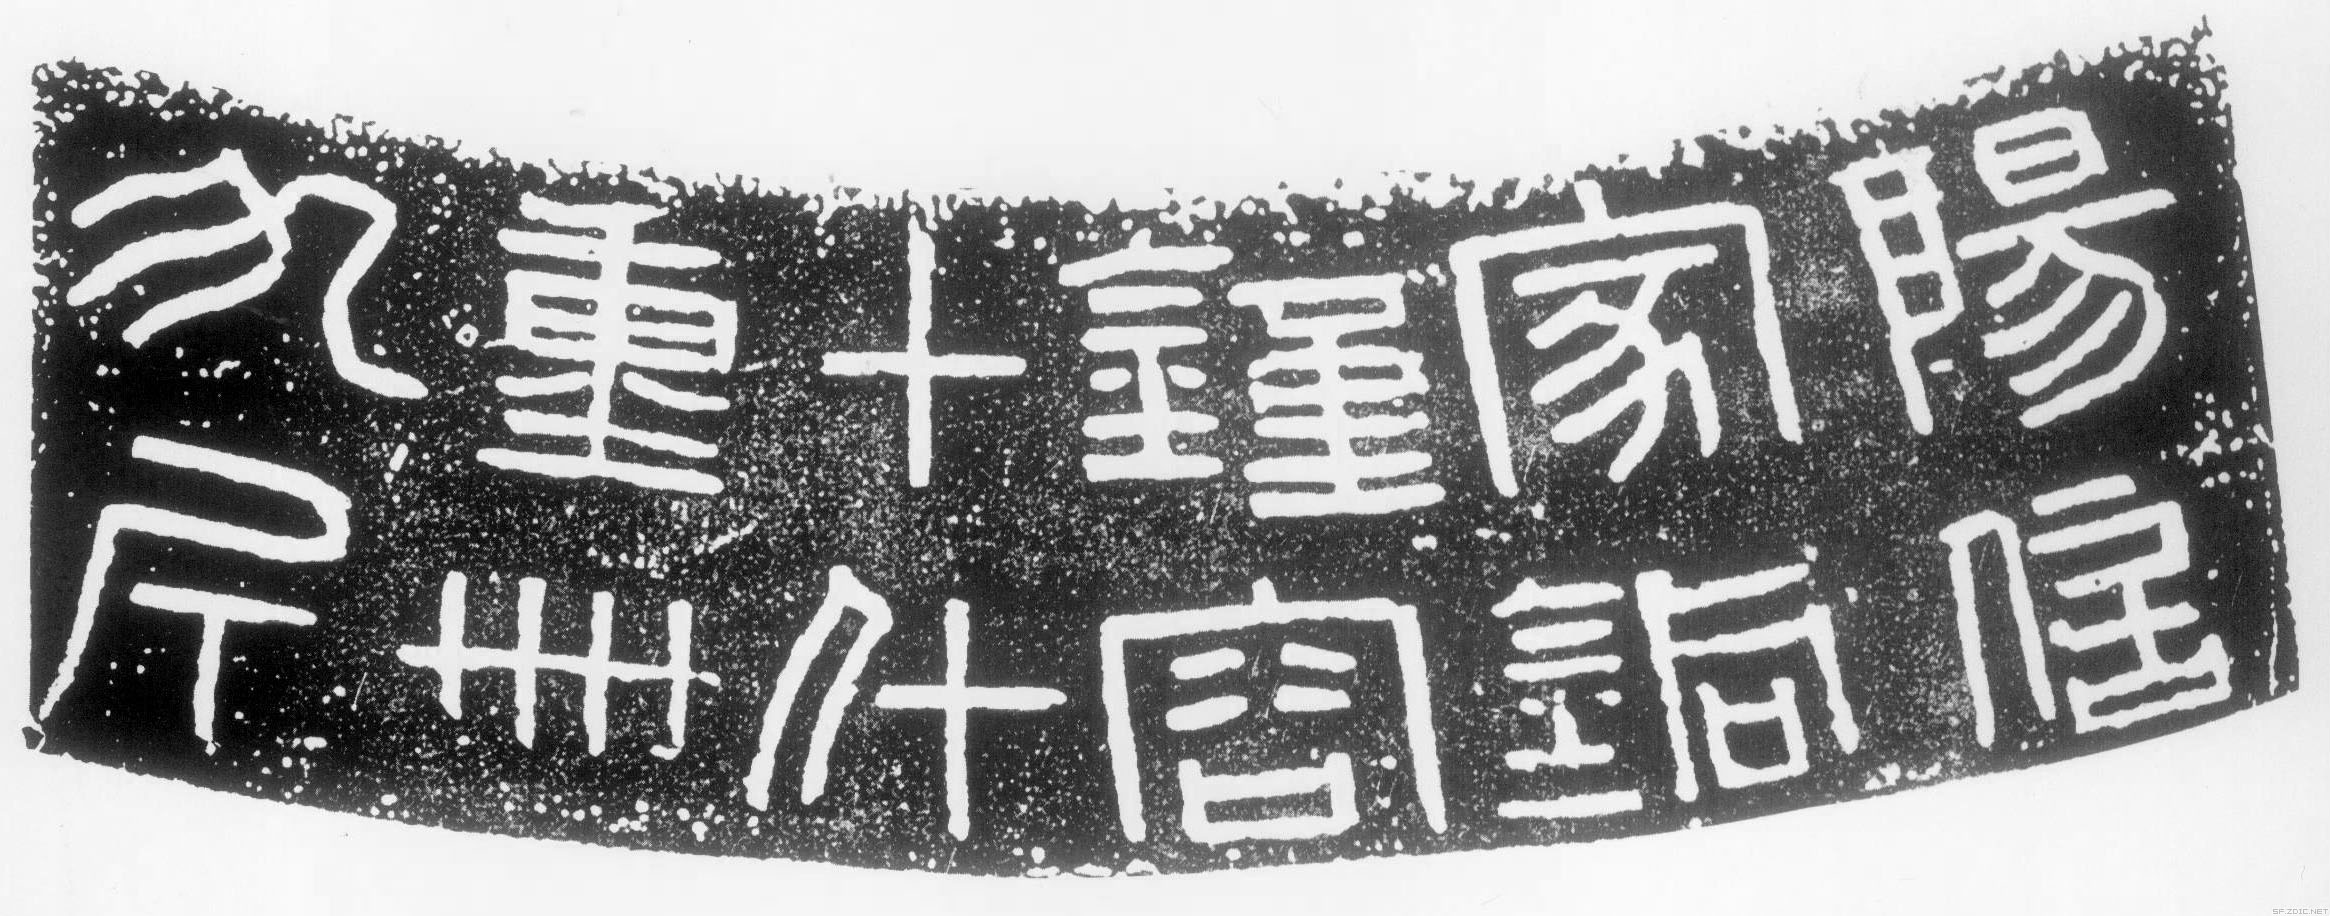 陽信
家銅
鍾容
十斗
重卌
九斤
SF.ZDIC.NET